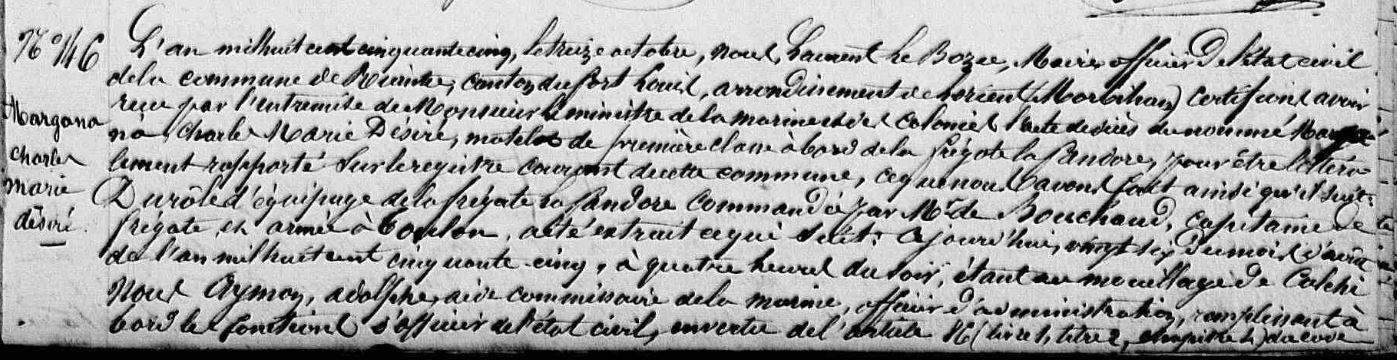 N° 46
Margana
charles
marie
désiré.
L'an mil huit cent cinquante cinq, le treize octobre, nous, Laurent Le Bozec, Maire, officier de l'état civil
de la commune de Riantec, canton du Port Louis, arrondissement de Lorient (Morbihan) certifions avoir
reçu par l'entremise de Monsieur le ministre de la marine et des colonies l'acte de décès du nommé
na Charles Marie Désiré, matelot de première classe à bord de la frégate la Pandore, pour être
lement rapporté sur le registre courant de cette commune, ce que nous avons fait ainsi qu'il suit:
Du rôle d'équipage de la frégate la Pandore commandée par Mr de Bouchaud, capitaine de
frégate, et armée à Toulon, a été extrait ce qui suit: Cejourd'hui, vingt six du mois d'avril
de l'an mil huit cent cinquante cinq, à quatre heures du soir, étant au mouillage de
Nous Aymon, adolphe, aide commissaire de la marine, officier d'administration, remplissant à
bord les fonctions d'officier de l'état civil, en vertu de l'article 86 (livre 1, titre 2, chapitre 4) du code